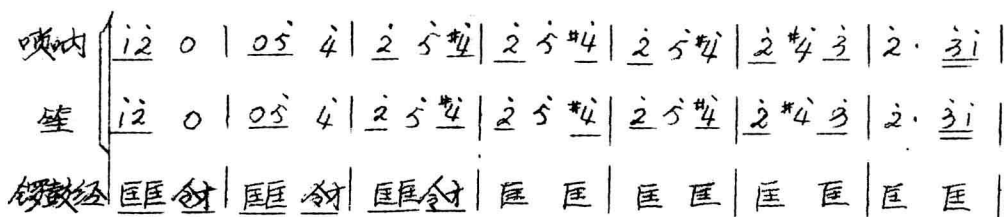 唢呐 i̇2̇ 0 | 05̇ 4̇ | 2̇ 5̇ #4̇ | 2̇ 5̇ #4̇ | 2̇ 5̇ #4̇ | 2̇ #4̇ 3̇ | 2̇· 3̇i̇ |
笙 i̇2̇ 0 | 05̇ 4̇ | 2̇ 5̇ #4̇ | 2̇ 5̇ #4̇ | 2̇ 5̇ #4̇ | 2̇ #4̇ 3̇ | 2̇· 3̇i̇ |
锣鼓经 匡匡 令才 | 匡匡 令才 | 匡匡令才 | 匡 匡 | 匡 匡 | 匡 匡 | 匡 匡 |